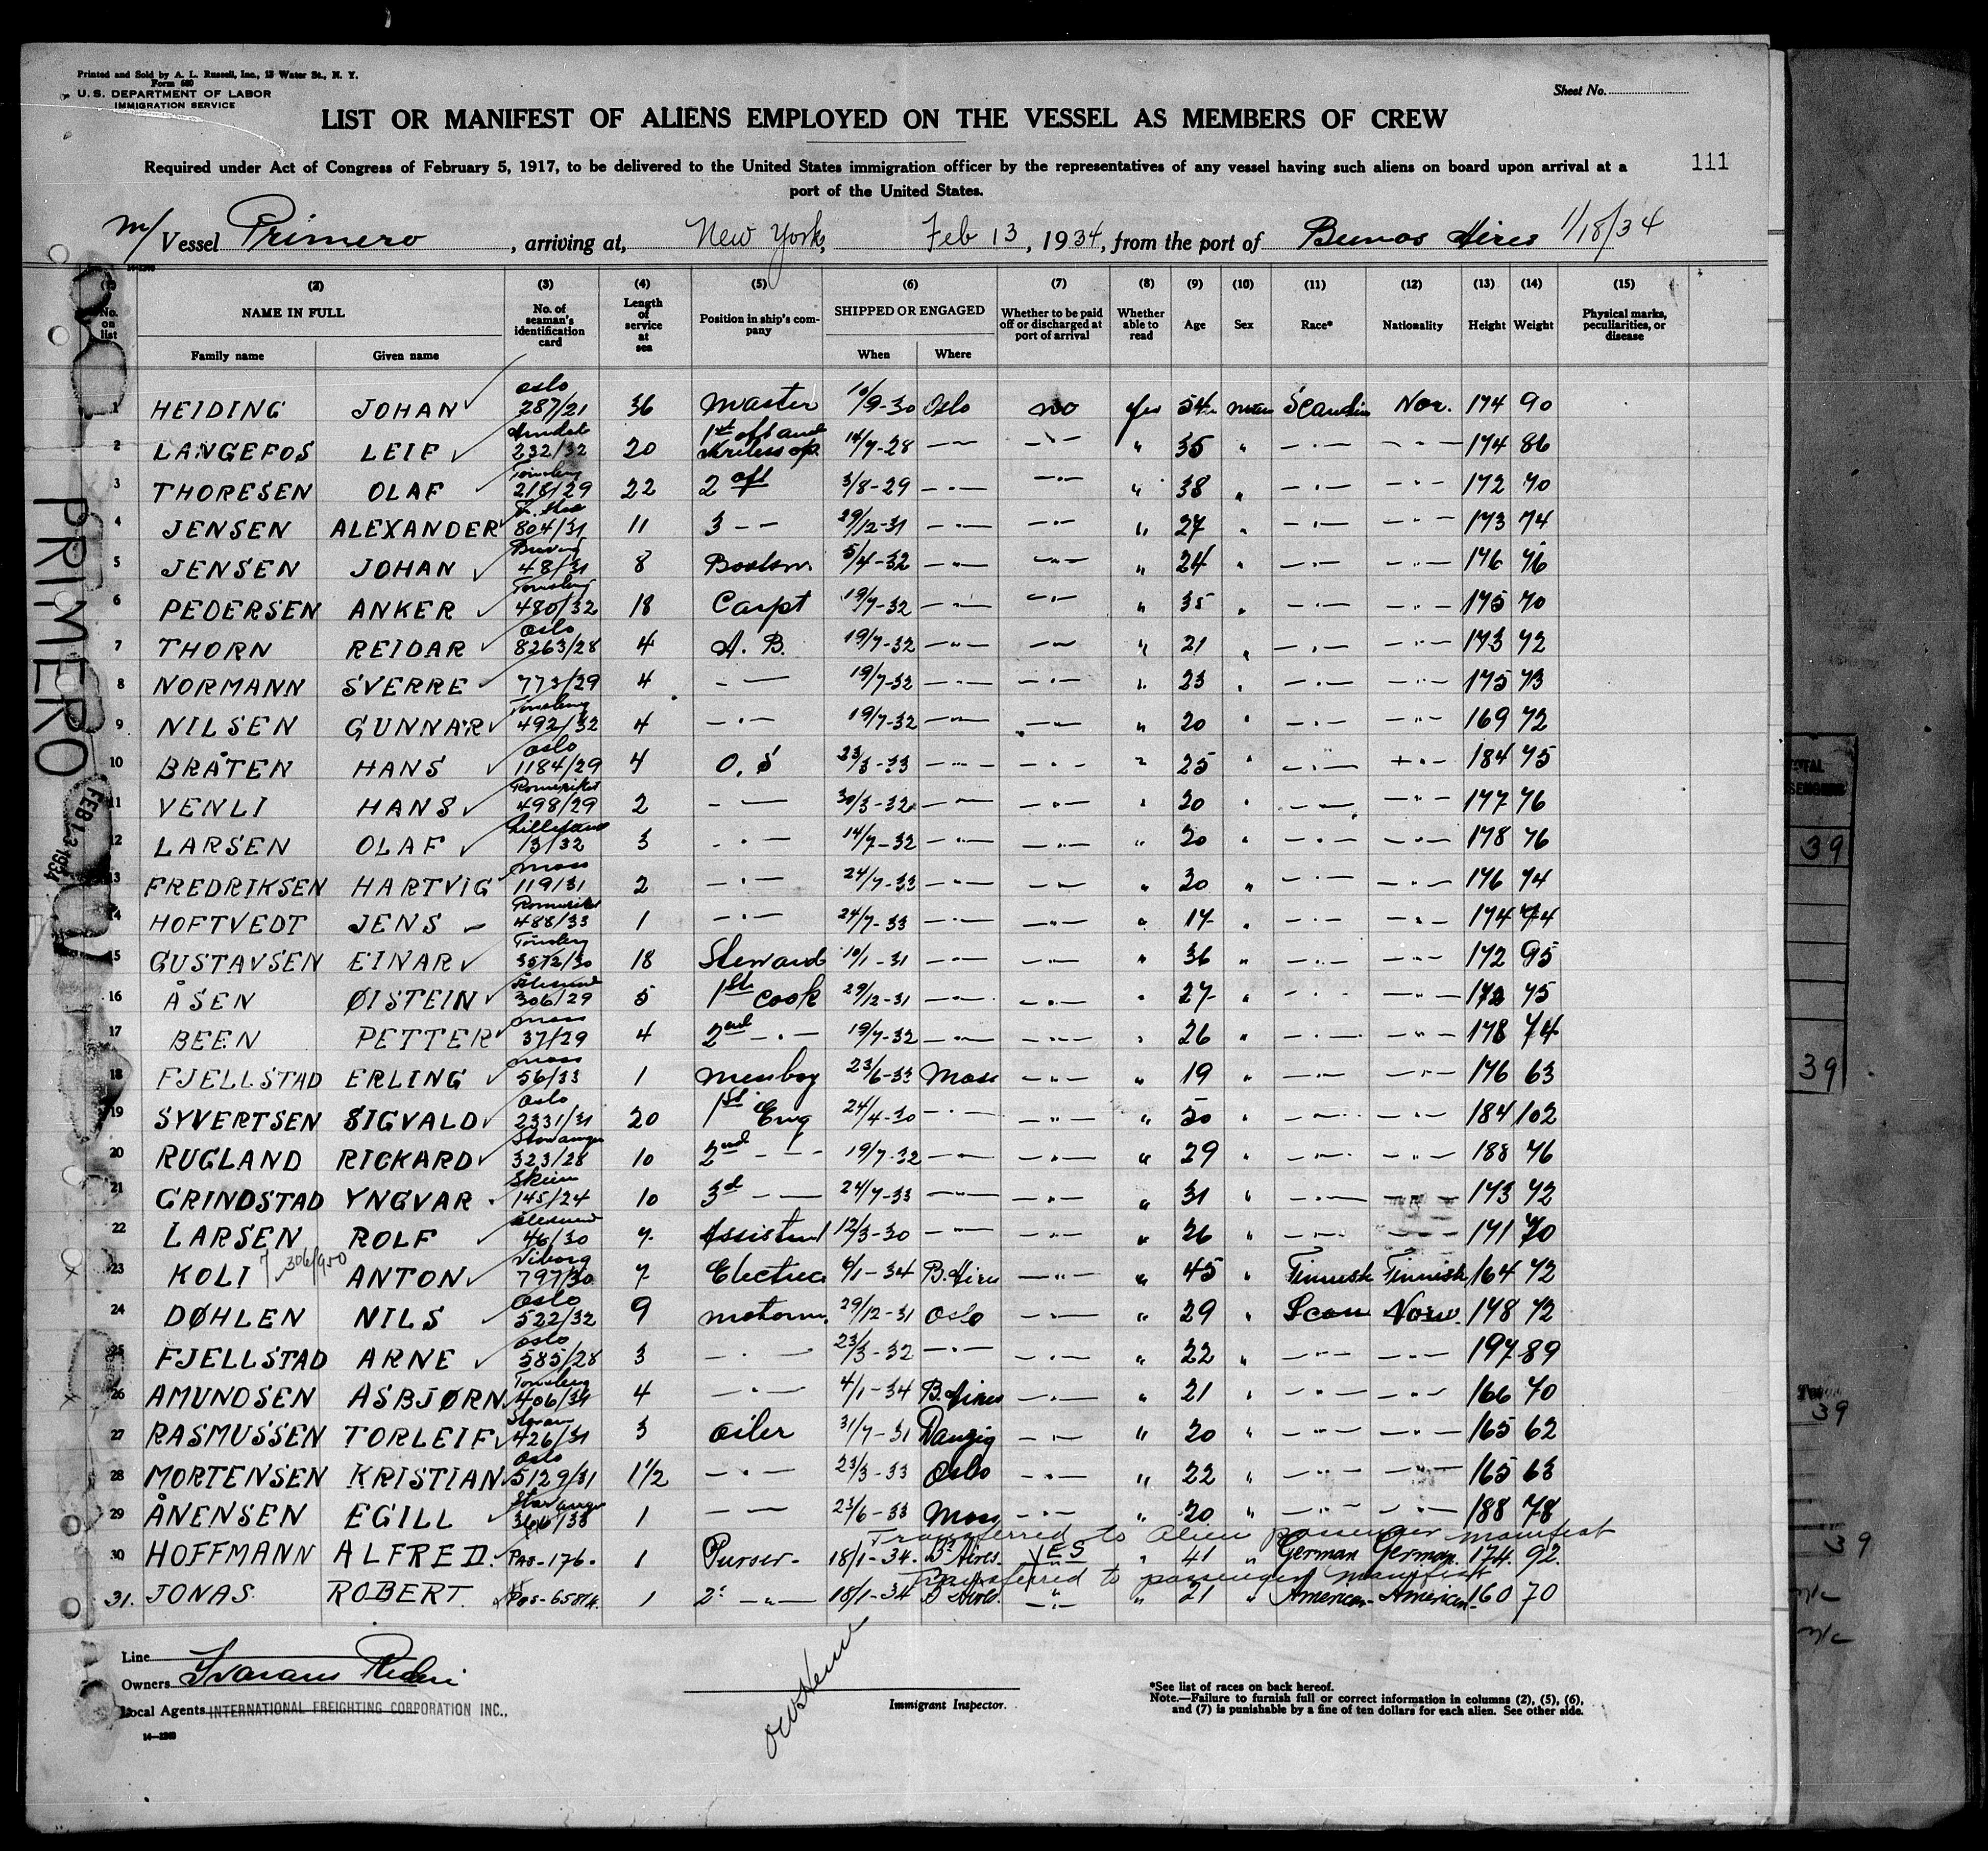 Printed and Sold by A. L. Russell, Inc., 13 Water St., N. Y.
Form 680
U. S. DEPARTMENT OF LABOR
IMMIGRATION SERVICE
Sheet No.
LIST OR MANIFEST OF ALIENS EMPLOYED ON THE VESSEL AS MEMBERS OF CREW
Required under Act of Congress of February 5, 1917, to be delivered to the United States immigration officer by the representatives of any vessel having such aliens on board upon arrival at a
port of the United States.
111
m/ Vessel Primero, arriving at, New York, Feb 13, 1934, from the port of Buenos Aires 1/18/34
(1) (2) (3) (4) (5) (6) (7) (8) (9) (10) (11) (12) (13) (14) (15)
No. on list NAME IN FULL No. of seaman's identification card Length of service at sea Position in ship's company SHIPPED OR ENGAGED Whether to be paid off or discharged at port of arrival Whether able to read Age Sex Race* Nationality Height Weight Physical marks, peculiarities, or disease
Family name Given name When Where
1 HEIDING JOHAN Oslo 287/21 36 Master 10/9-30 Oslo no yes 54 Scandin Nor. 174 90
2 LANGEFOS LEIF 232/32 20 1st off and 14/7-28 — " — — " — " 35 " — " — — " — 174 86
3 THORESEN OLAF Tönsberg 218/29 22 2 off 3/8-29 — " — — " — " 38 " — " — — " — 172 70
4 JENSEN ALEXANDER 804/31 11 3 — — 29/12-31 — " — — " — " 27 " — " — — " — 173 74
5 JENSEN JOHAN 48/31 8 Boatsw. 5/4-32 — " — — " — " 24 " — " — — " — 176 76
6 PEDERSEN ANKER Tönsberg 480/32 18 Carpt 19/7-32 — " — — " — " 35 " — " — — " — 175 70
7 THORN REIDAR Oslo 8263/28 4 A. B. 19/7-32 — " — — " — " 21 " — " — — " — 173 72
8 NORMANN SVERRE 773/29 4 — — 19/7-32 — " — — " — " 23 " — " — — " — 175 73
9 NILSEN GUNNAR Tönsberg 492/32 4 — " — 19/7-32 — " — — " — " 20 " — " — — " — 169 72
10 BRÅTEN HANS Oslo 1184/29 4 O. S 23/3-33 — " — — " — " 25 " — " — — " — 184 75
11 VENLI HANS Romeriket 498/29 2 — — 30/3-32 — " — — " — " 20 " — " — — " — 177 76
12 LARSEN OLAF Lillesand 13/32 3 — " — 14/7-32 — " — — " — " 20 " — " — — " — 178 76
13 FREDRIKSEN HARTVIG Moss 119/31 2 — " — 24/7-33 — " — — " — " 20 " — " — — " — 176 74
14 HOFTVEDT JENS Romeriket 488/33 1 — " — 24/7-33 — " — — " — " 17 " — " — — " — 174 74
15 GUSTAVSEN EINAR Tönsberg 3572/30 18 Steward 10/1-31 — " — — " — " 36 " — " — — " — 172 95
16 ÅSEN ØISTEIN Ålesund 306/29 5 1st Cook 29/12-31 — " — — " — " 27 " — " — — " — 172 75
17 BEEN PETTER Moss 37/29 4 2nd — " — 19/7-32 — " — — " — " 26 " — " — — " — 178 74
18 FJELLSTAD ERLING Moss 56/33 1 Messboy 23/6-33 Moss — " — " 19 " — " — — " — 176 63
19 SYVERTSEN SIGVALD Oslo 2331/31 20 1st Eng 24/4-30 — " — — " — " 50 " — " — — " — 184 102
20 RUGLAND RICKARD Stavanger 323/28 10 2nd — " — 19/7-32 — " — — " — " 29 " — " — — " — 188 76
21 GRINDSTAD YNGVAR Skien 145/24 10 3d — — 24/7-33 — " — — " — " 31 " — " — — " — 173 72
22 LARSEN ROLF Ålesund 46/30 7 Assistent 12/3-30 — " — — " — " 26 " — " — — " — 171 70
23 KOLI 306/950 ANTON Viborg 797/30 7 Electric 6/1-34 B. Aires — " — " 45 " Finnish Finnish 164 72
24 DØHLEN NILS Oslo 522/32 9 motorm. 29/12-31 Oslo — " — " 29 " Scan Norw. 178 72
25 FJELLSTAD ARNE Oslo 585/28 3 — " — 23/3-32 — " — — " — " 22 " — " — — " — 197 89
26 AMUNDSEN ASBJØRN Tönsberg 406/31 4 — " — 4/1-34 B. Aires — " — " 21 " — " — — " — 166 70
27 RASMUSSEN TORLEIF 426/31 3 Oiler 31/7-31 Danzig — " — " 20 " — " — — " — 165 62
28 MORTENSEN KRISTIAN Oslo 5129/31 1 1/2 — " — 23/3-33 Oslo — " — " 22 " — " — — " — 165 63
29 ÅNENSEN EGILL Stavanger 366/33 1 — — 23/6-33 Moss — " — " 20 " — " — — " — 188 78
Transferred to Alien passenger manifest
30 HOFFMANN ALFRED. Pas-176. 1 Purser- 18/1-34. B Aires. YES " 41 " German German. 174. 92.
Transferred to passenger manifest
31. JONAS. ROBERT. Pas-65814. 1 2. — " — 18/1-34 B Aires. — " — " 21 " American- American- 160 70
Line
Owners Ivarans Rederi
Local Agents INTERNATIONAL FREIGHTING CORPORATION INC.,
14—1240
Immigrant Inspector.
*See list of races on back hereof.
Note.—Failure to furnish full or correct information in columns (2), (5), (6),
and (7) is punishable by a fine of ten dollars for each alien. See other side.
PRIMERO
FEB 13 1934
39
39
39
39